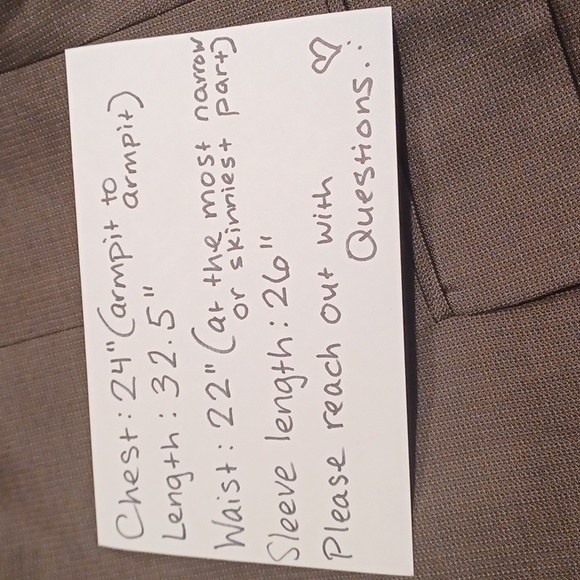 Chest: 24" (armpit to
armpit)
Length: 32.5"
Waist: 22" (at the most narrow
or skinniest part)
Sleeve length: 26"
Please reach out with ♡
Questions!: